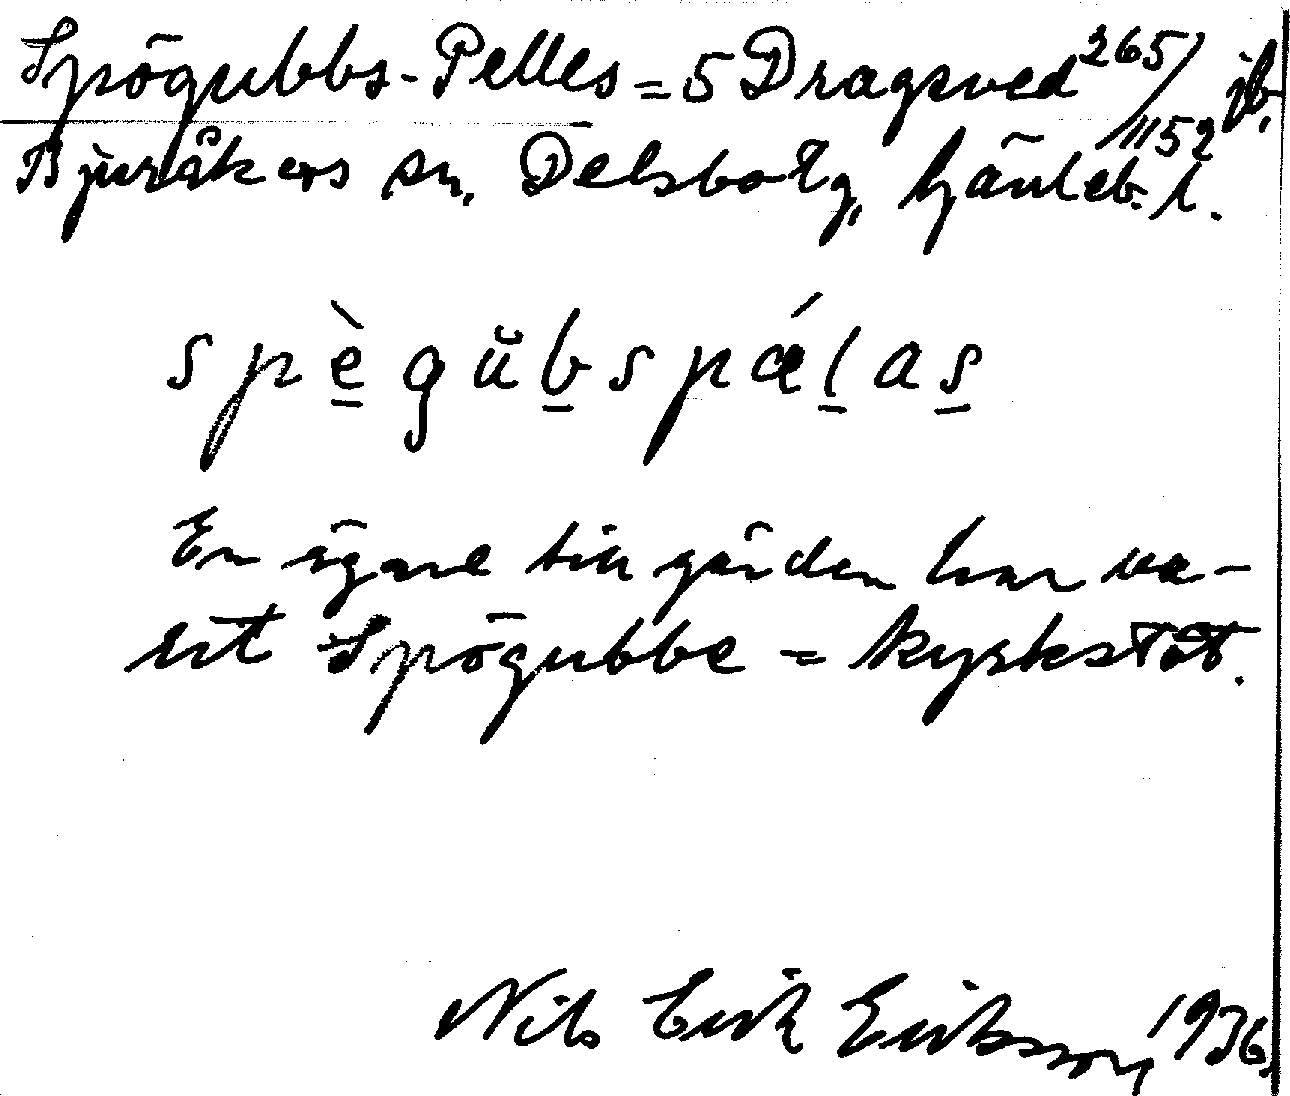 Spögubbs-Pelles = 5 Dragsved 265/1152 jb.
Bjuråkers sn, Delsbo tg, Gävleb. l.
spè̱gŭb̲spǽl̲as̲
En ägare till gården har va-
rit Spögubbe = kyrkstöt.
Nils Erik Eriksson, 1936.